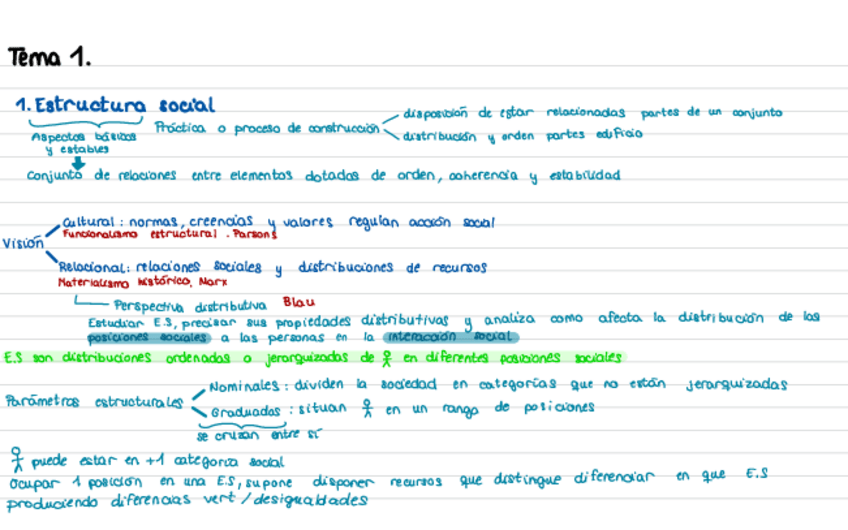 Tema 1.
1. Estructura social
disposición de estar relacionadas partes de un conjunto
Práctica o proceso de construcción
distribución y orden partes edificio
Aspectos básicos
y estables
Conjunto de relaciones entre elementos dotados de orden, coherencia y estabilidad
Cultural: normas, creencias y valores regulan acción social
Funcionalismo estructural. Parsons
Visión
Relacional: relaciones sociales y distribuciones de recursos
Materialismo histórico, Marx
Perspectiva distributiva Blau
Estudiar E.S, precisar sus propiedades distributivas y analiza como afecta la distribución de las
posiciones sociales a las personas en la interacción social
E.S son distribuciones ordenadas o jerarquizadas de en diferentes posiciones sociales
Nominales: dividen la sociedad en categorías que no están jerarquizadas
Parámetros estructurales
Graduados: situan en un rango de posiciones
se cruzan entre sí
puede estar en +1 categoría social
ocupar 1 posición en una E.S, supone disponer recursos que distingue diferenciar en que E.S
produciendo diferencias vert/desigualdades